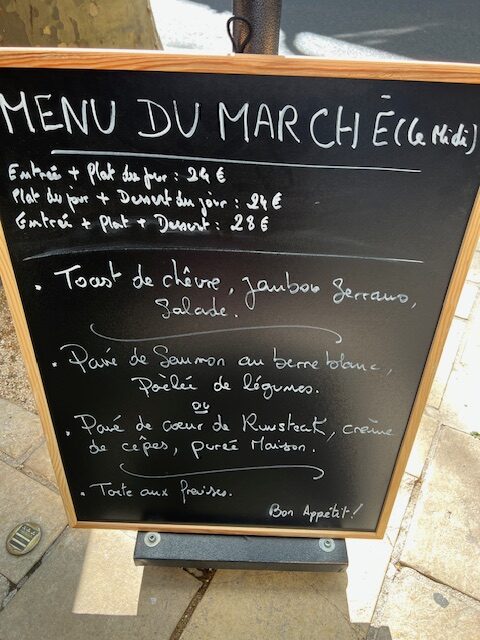 MENU DU MARCHÉ (Le Midi)
Entrée + Plat du jour : 24 €
Plat du jour + Dessert du jour : 24 €
Entrée + Plat + Dessert : 28 €
. Toast de chèvre, Jambon Serrano,
Salade.
. Pavé de Saumon au beurre blanc,
Poêlée de légumes.
ou
. Pavé de cœur de Rumsteack, crème
de cèpes, purée Maison.
. Tarte aux fraises.
Bon Appétit !